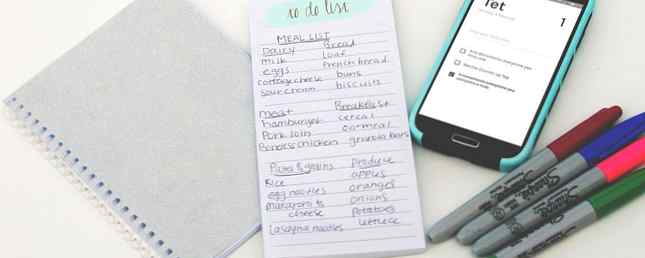 to do list
MEAL LIST
Dairy Bread
milk loaf
eggs french bread
cottage cheese buns
sour cream biscuits
meat Breakfast
hamburger cereal
Pork loin oatmeal
Boneless chicken granola bars
Pasta & grains produce
Rice apples
egg noodles oranges
macaroni & onions
cheese potatoes
lasagna noodles lettuce
Tet
1
Sharpie
Sharpie
Sharpie